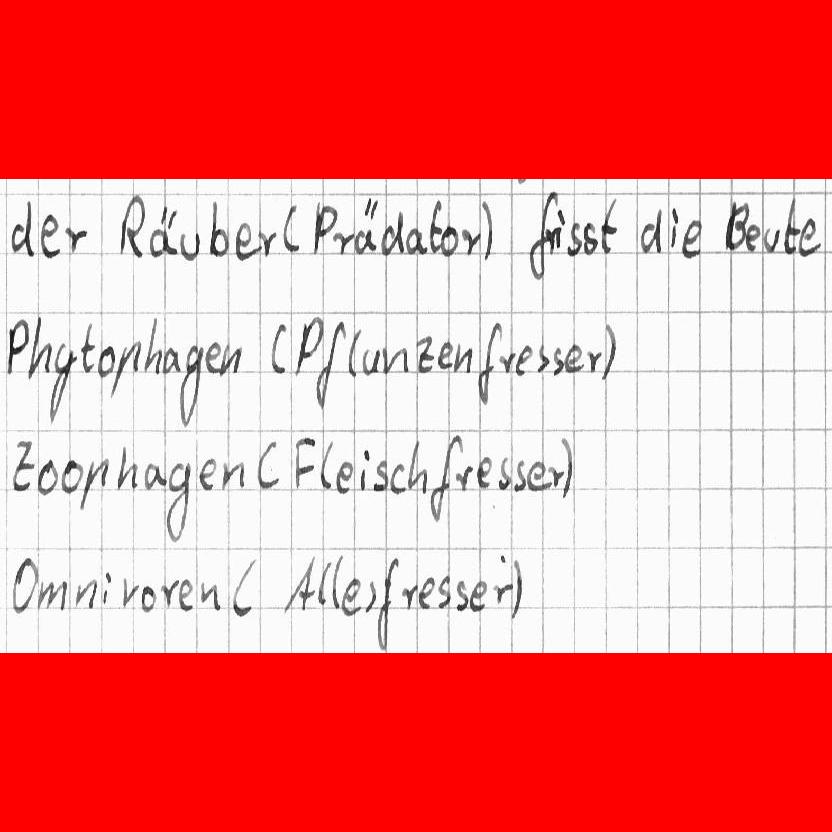 der Räuber (Prädator) frisst die Beute
Phytophagen (Pflanzenfresser)
Zoophagen (Fleischfresser)
Omnivoren (Allesfresser)